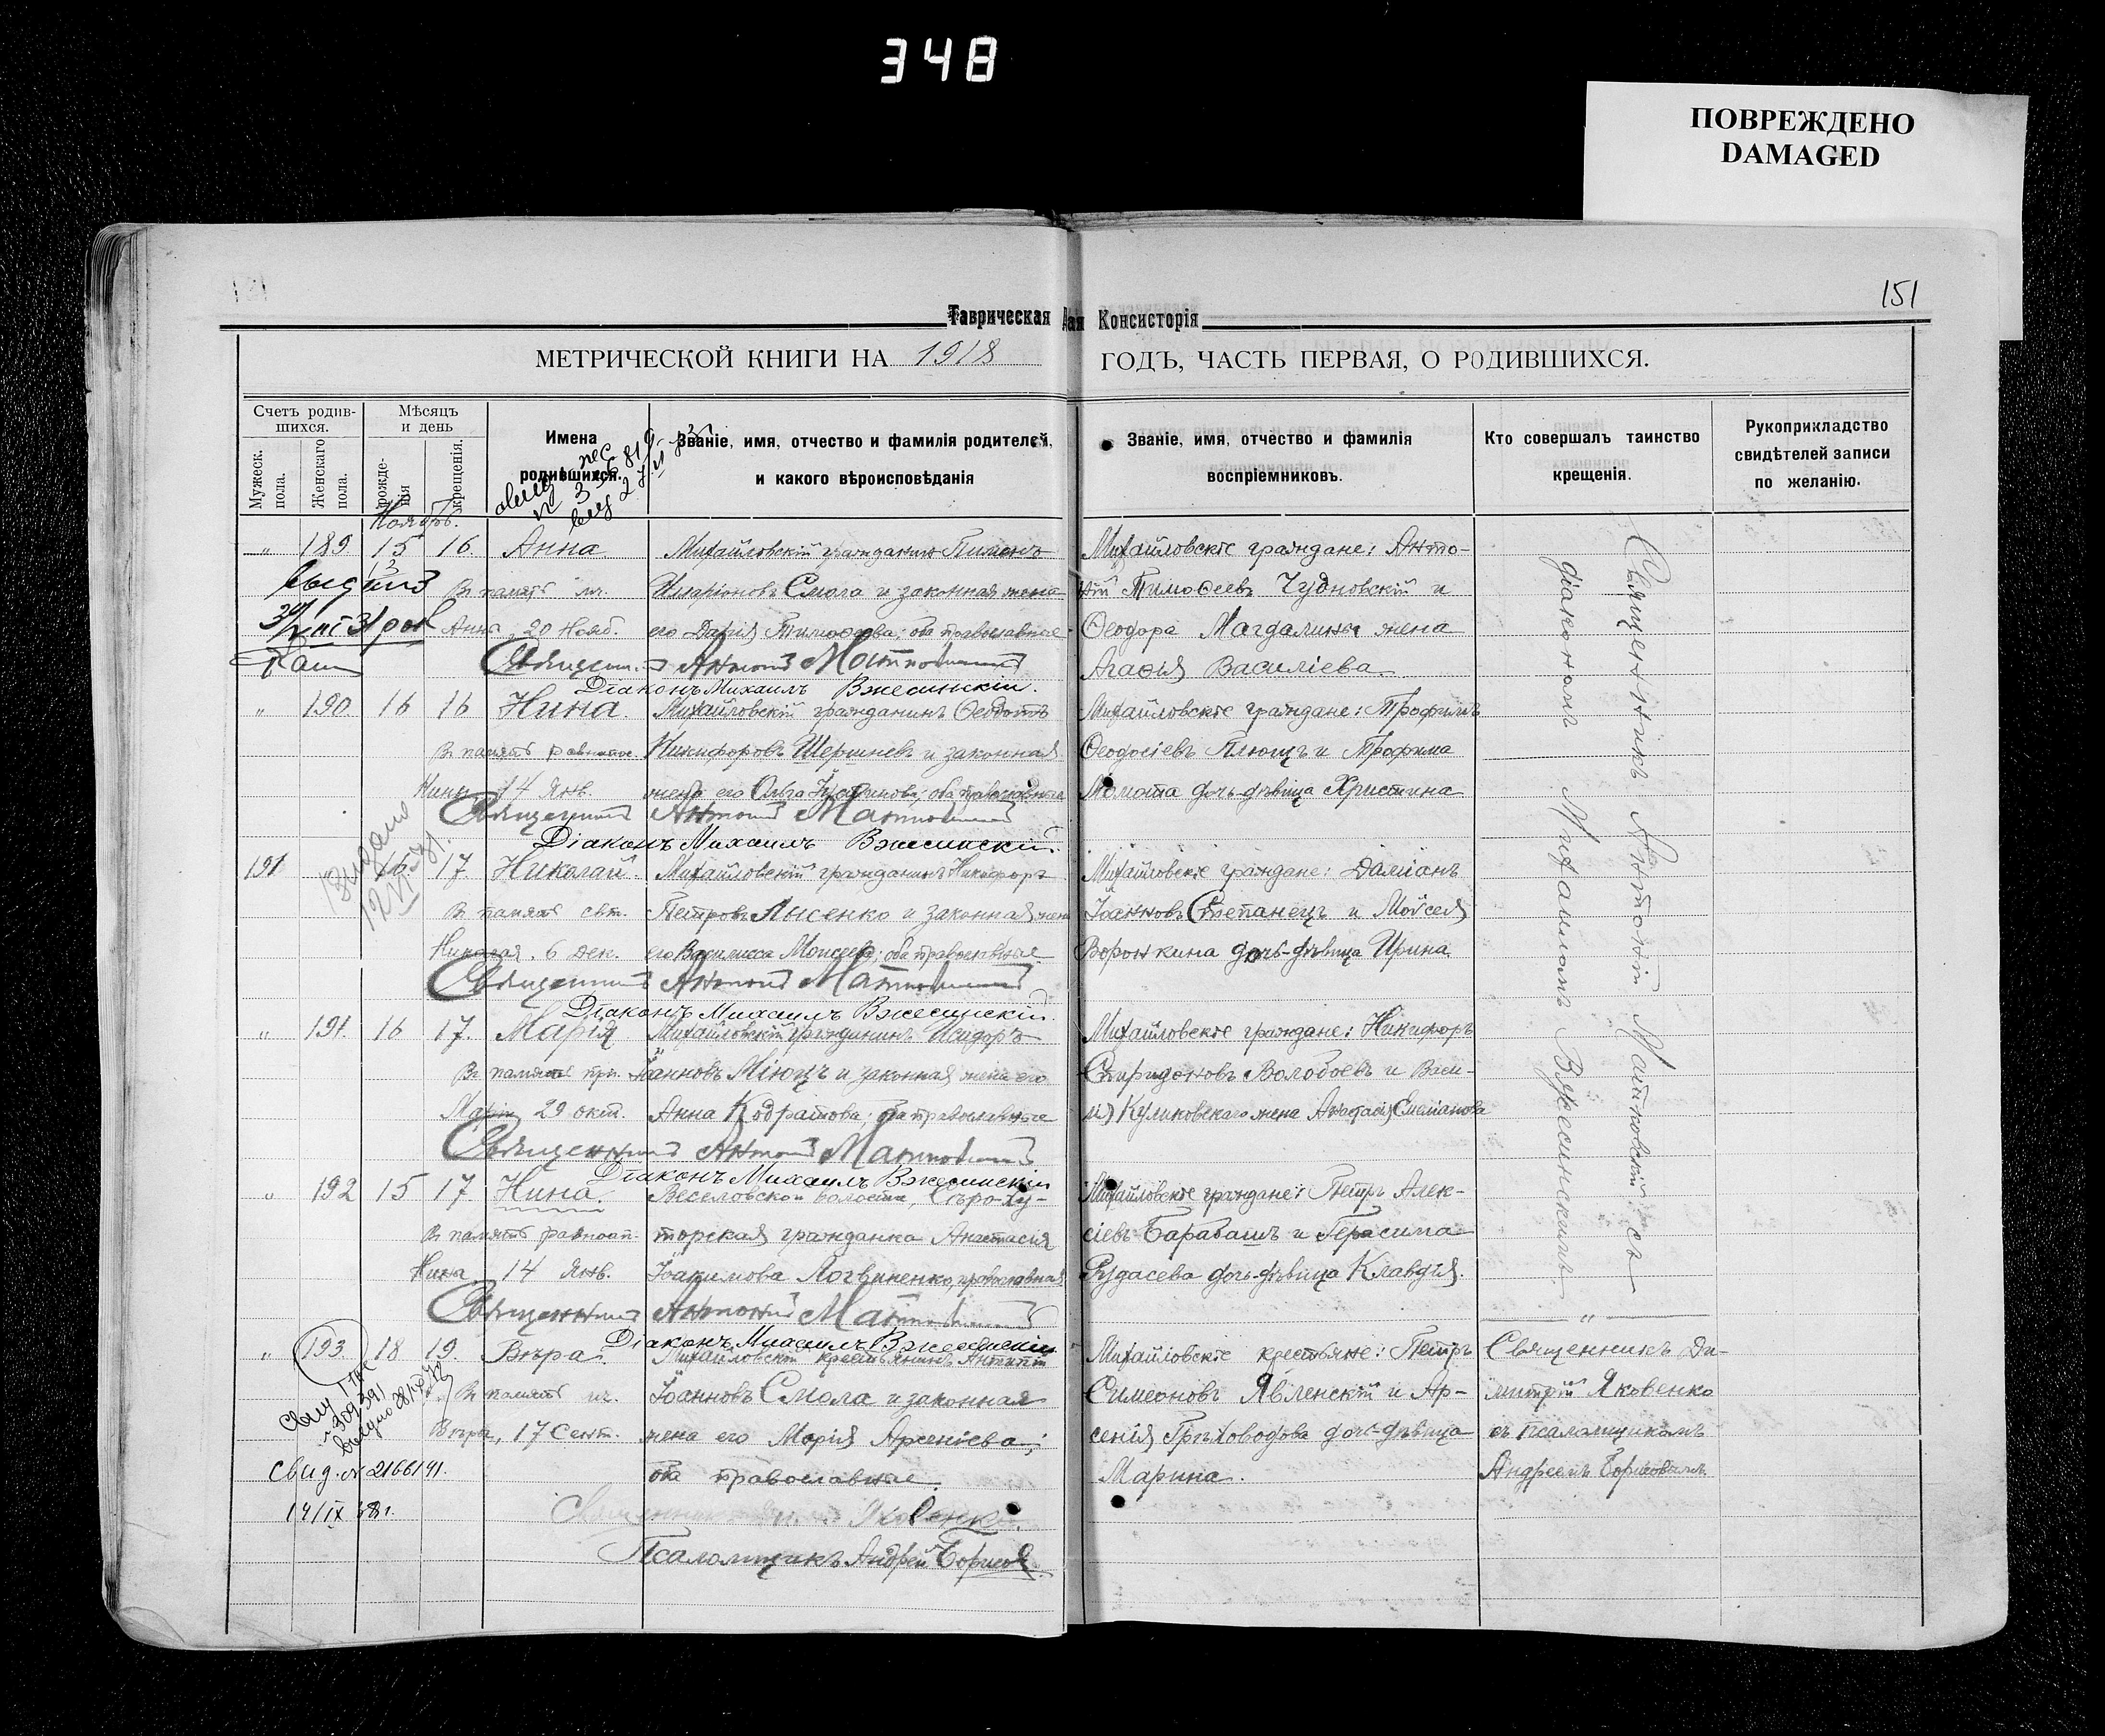 348
ПОВРЕЖДЕНО
DAMAGED
151
Таврическая Консисторія
МЕТРИЧЕСКОЙ КНИГИ НА 1918 ГОДЪ, ЧАСТЬ ПЕРВАЯ, О РОДИВШИХСЯ.
Счетъ родив-
шихся.
Мужеск. пола.
Женскаго пола.
Мѣсяцъ
и день
рожде-
нія
крещенія.
Имена
родившихся.
Званіе, имя, отчество и фамилія родителей,
и какого вѣроисповѣданія
Званіе, имя, отчество и фамилія
воспріемниковъ.
Кто совершалъ таинство
крещенія.
Рукоприкладство
свидѣтелей записи
по желанію.
Ноябрь.
" 189 15 16. Анна Михайловскій гражданинъ Пименъ
Въ память мч. Иларіоновъ Смола и законная жена
Анны, 20 Нояб. его Дарія Тимоѳеева; оба православные
Священникъ Антоній
Діаконъ Михаилъ Вжесинскій.
Михайловскіе граждане: Анто-
ній Тимоѳеевъ Чудновскій и
Ѳеодора Магдалины жена
Агаѳія Василіева.
" 190. 16 16 Нина. Михайловскій гражданинъ Ѳеодотъ
Въ память равноап. Никифоровъ Шершневъ и законная
Нины 14 Янв. жена его Ольга оба православные
Священникъ Антоній
Діаконъ Михаилъ Вжесинскій.
Михайловскіе граждане: Трофимъ
Ѳеодосіевъ Плющъ и Трофима
Момота дочь-дѣвица Христина
Выдано
12 VI 31.
191 16. 17. Николай. Михайловскій гражданинъ Никифоръ
Въ память свт. Петровъ Лысенко и законная жена
Николая, 6 дек. его Василисса Моисеева; оба православные
Священникъ Антоній
Діаконъ Михаилъ Вжесинскій.
Михайловскіе граждане: Даміанъ
Іоанновъ Степанецъ и Мойсея
Воронкина дочь-дѣвица Ирина
" 191. 16 17. Марія Михайловскій гражданинъ Исидоръ
Въ память прп. Іоанновъ и законная жена его
Маріи 29 окт. Анна Кодратова; оба православные
Священникъ Антоній
Діаконъ Михаилъ Вжесинскій
Михайловскіе граждане: Никифоръ
Спиридоновъ Волобоевъ и Васи-
лія Куликовскаго жена Анастасія Емеліанова
" 192 15 17 Нина. Веселовской волости,
Въ память равноап. торская гражданка Анастасія
Нина 14 Янв. Іоакимова Логвиненко, православная
Священникъ Антоній
Діаконъ Михаилъ Вжесинскій
Михайловскіе граждане: Петръ Алек-
сіевъ Барабашъ и Герасима
Рудасева дочь-дѣвица Клавдія.
Священникъ Антоній съ
діакономъ Михаиломъ Вжесинскимъ
" 193 18 19. Вѣра. Михайловскій крестьянинъ
Въ память мч. Іоанновъ Смола и законная
Вѣры, 17 Сент. жена его Марія Арсеніева;
оба православные.
Михайловскіе крестьяне: Петръ
Симеоновъ Явленскій и Ар-
сенія Грѣховодова дочь-дѣвица
Марина.
Священникъ Ди-
митрій Яковенко
съ псаломщикомъ
Андреемъ Борисовымъ
№ 309391
свид. № 2166141.
14/IX 38г.
Священникъ Яковенко.
Псаломщикъ Андрей Борисовъ.